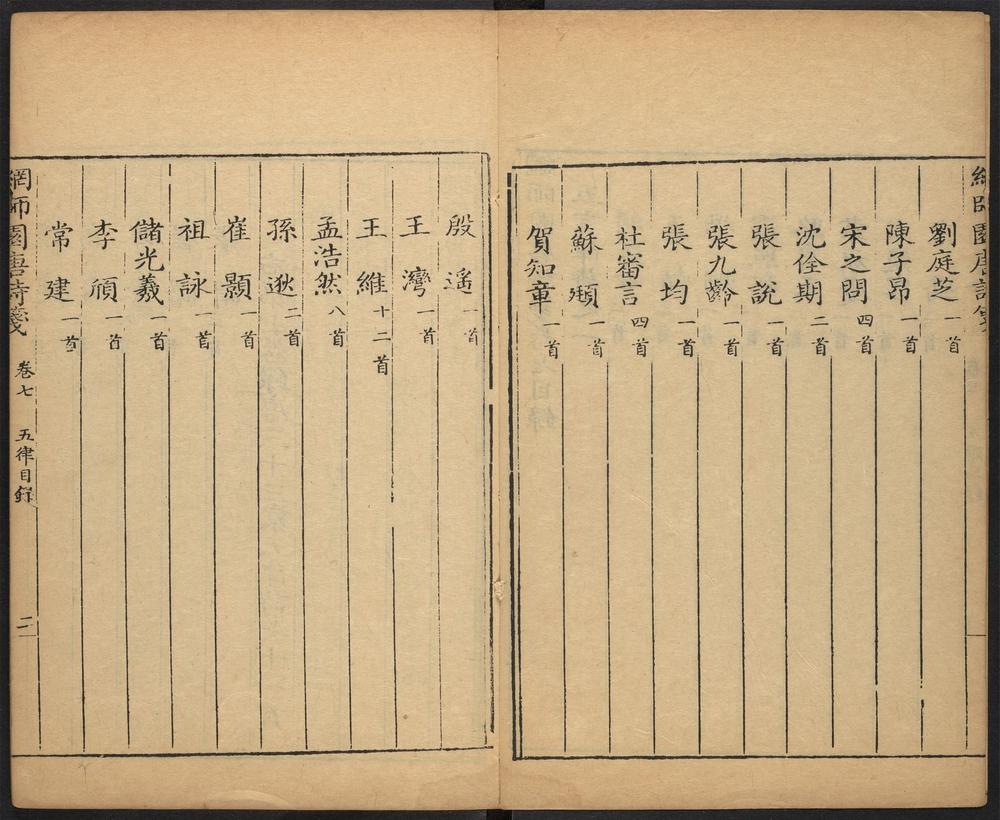 網師園唐詩箋
劉庭芝 一首
陳子昂 一首
宋之問 四首
沈佺期 二首
張說 一首
張九齡 一首
張均 一首
杜審言 四首
蘇頲 一首
賀知章 一首
殷遙 一首
王灣 一首
王維 十二首
孟浩然 八首
孫逖 二首
崔顥 一首
祖詠 一首
儲光羲 一首
李頎 一首
常建 一首
網師園唐詩箋 卷七 五律目錄 二